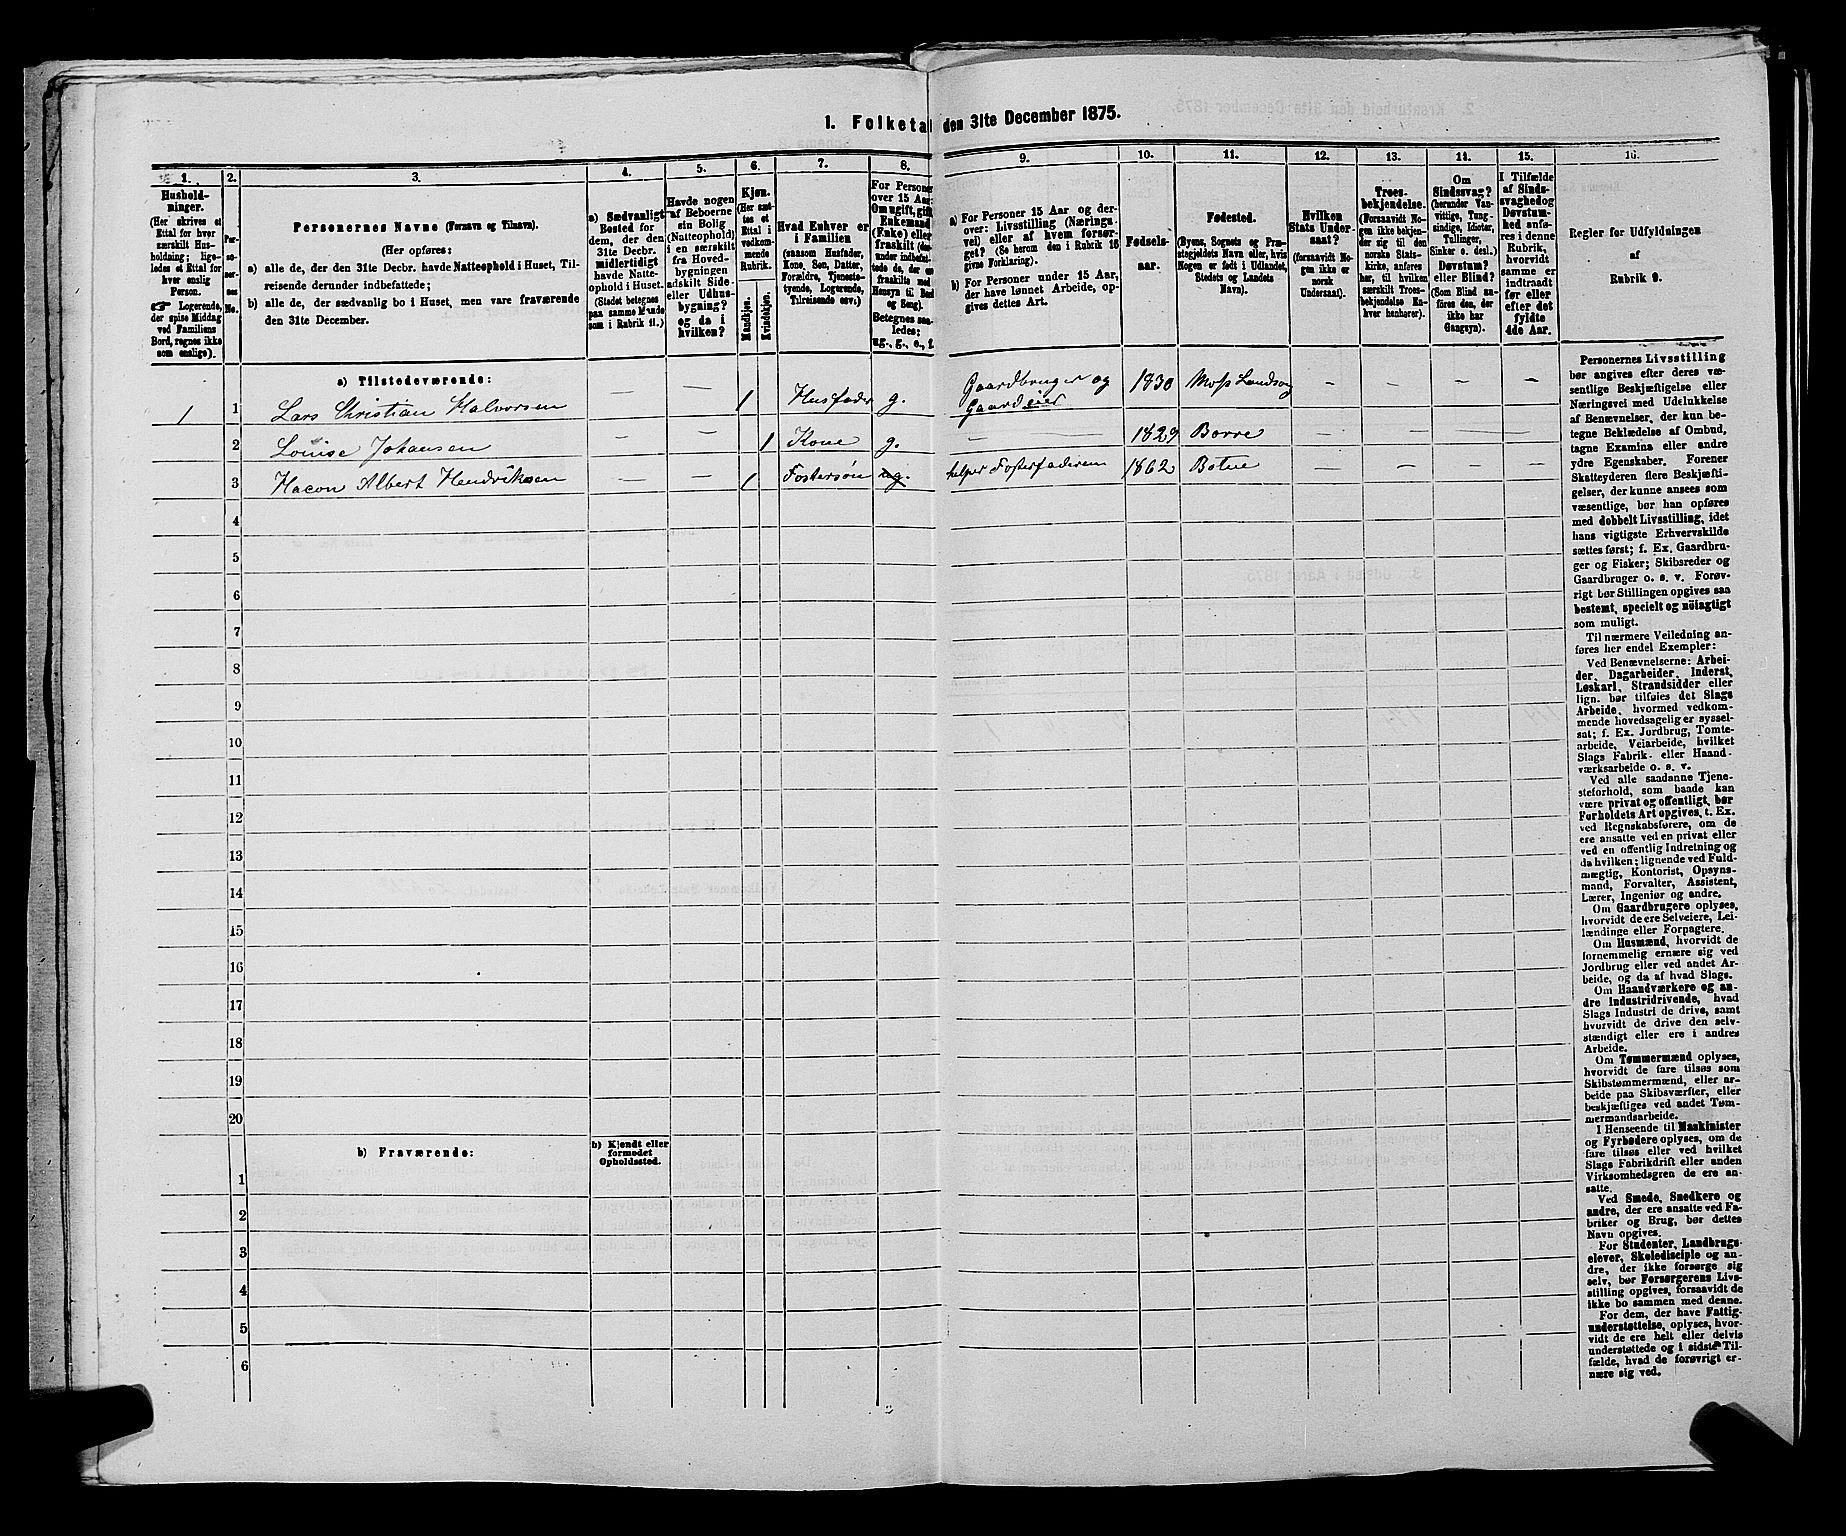 1. Folketal den 31te December 1875.
1.
2.
3.
4.
5.
6.
7.
8.
9.
10.
11.
12.
13.
14.
15.
16.
Hushold-
ninger.
(Her skrives et
Ettal for hver
særskilt Hus-
holdning; lige-
ledes et Ettal for
hver enslig
Person.
☞ Logerende,
der spise Middag
ved Familiens
Bord, regnes ikke
som enslige).
Per-
so-
ner-
nes
No.
Personernes Navne (Fornavn og Tilnavn).
(Her opføres:
a) alle de, der den 31te Decbr. havde Natteophold i Huset, Til-
reisende derunder indbefattede;
b) alle de, der sædvanlig bo i Huset, men vare fraværende
den 31te December.
a) Sædvanligt
Bosted for
dem, der den
31te Decbr.
midlertidigt
havde Natte-
ophold i Huset.
(Stedet betegnes
paa samme Maade
som i Rubrik 11.)
Havde nogen
af Beboerne
sin Bolig
(Natteophold)
i en særskilt
fra Hoved-
bygningen
adskilt Side-
eller Udhus-
bygning?
og da i
hvilken?
Kjøn.
(Her sæt-
tes et
Ettal i
vedkom-
mende
Rubrik.
Mandkjøn.
Kvindekjøn.
Hvad Enhver er
i Familien
(saasom Husfader,
Kone, Søn, Datter,
Forældre, Tjeneste-
tyende, Logerende,
Tilreisende osv.)
For Personer
over 15 Aar:
Om ugift, gift,
Enkemand
(Enke) eller
fraskilt (der-
under indbefat-
tede de, der ere
fraskilte med
Hensyn til Bord
og Seng).
Betegnes saa-
ledes:
ug., g., e., f.
a) For Personer 15 Aar og der-
over: Livsstilling (Nærings-
vei) eller af hvem forsør-
get? (Se herom den i Rubrik 16
givne Forklaring).
b) For Personer under 15 Aar,
der have lønnet Arbeide, op-
gives dettes Art.
Fødsels-
aar.
Fødested.
(Byens, Sognets og Præ-
stegjeldets Navn eller, hvis
Nogen er født i Udlandet,
Stedets og Landets
Navn).
Hvilken
Stats Under-
saat?
(forsaavidt No-
gen ikke er
norsk
Undersaat).
Troes-
bekjendelse.
(Forsaavidt No-
gen ikke bekjen-
der sig til den
norske Stats-
kirke, anføres
her, til hvilken
særskilt Troes-
bekjendelse En-
hver henhører).
Om
Sindssvag?
(herunder Van-
vittige, Tung-
sindige, Idioter,
Tullinger,
Sinker o. desl.)
Døvstum?
eller Blind?
(Som Blind an-
føres den, der
ikke har
Gangsyn).
I Tilfælde
af Sinds-
svaghed og
Døvstum-
hed anfø-
res i denne
Rubrik,
hvorvidt
samme er
indtraadt
før eller
efter det
fyldte
4de Aar.
Regler for Udfyldningen
af
Rubrik 9.
a) Tilstedeværende:
1 1 Lars Christian Halvorsen — — 1 Husfader g. Gaardbruger og Gaardeier 1830 Moss Landsog — — — —
2 Louise Johansen — — 1 Kone g. — — 1829 Borre — — — —
3 Hacon Albert Hendriksen — — 1 Fostersøn ug. helper Fosterfaderen 1862 Botne — — — —
4
5
6
7
8
9
10
11
12
13
14
15
16
17
18
19
20
b) Fraværende:
b) Kjendt eller
formodet
Opholdssted.
1
2
3
4
5
6
Personernes Livsstilling
bør angives efter deres væ-
sentlige Beskjæftigelse eller
Næringsvei med Udelukkelse
af Benævnelser, der kun be-
tegne Beklædelse af Ombud,
tagne Examina eller andre
ydre Egenskaber. Forener
Skatteyderen flere Beskjæfti-
gelser, der kunne ansees som
væsentlige, bør han opføres
med dobbelt Livsstilling, idet
hans vigtigste Erhvervskilde
sættes først; f. Ex. Gaardbru-
ger og Fisker; Skibsreder og
Gaardbruger o. s. v. Forøv-
rigt bør Stillingen opgives saa
bestemt, specielt og nöiagtigt
som muligt.
Til nærmere Veiledning an-
føres her endel Exempler:
Ved Benævnelserne: Arbei-
der, Dagarbeider, Inderst,
Løskarl, Strandsidder eller
lign. bør tilføies det Slags
Arbeide, hvormed vedkom-
mende hovedsagelig er syssel-
sat; f. Ex. Jordbrug, Tomte-
arbeide, Veiarbeide, hvilket
Slags Fabrik- eller Haand-
værksarbeide o. s. v.
Ved alle saadanne Tjene-
steforhold, som baade kan
være privat og offentligt, bør
Forholdets Art opgives, t. Ex.
ved Regnskabsførere, om de
ere ansatte ved en privat eller
ved en offentlig Indretning og
da hvilken; lignende ved Fuld-
mægtig, Kontorist, Opsyns-
mand, Forvalter, Assistent,
Lærer, Ingeniør og andre.
Om Gaardbrugere oplyses,
hvorvidt de ere Selveiere, Lei-
lændinge eller Forpagtere.
Om Husmænd, hvorvidt de
fornemmelig ernære sig ved
Jordbrug eller ved andet Ar-
beide, og da af hvad Slags.
Om Haandværkere og an-
dre Industridrivende, hvad
Slags Industri de drive, samt
hvorvidt de drive den selv-
stændigt eller ere i andres
Arbeide.
Om Tømmermænd oplyses,
hvorvidt de fare tilsøs som
Skibstømmermænd, eller ar-
beide paa Skibsværfter, eller
beskjæftiges ved andet Tøm-
mermandsarbeide.
I Henseende til Maskinister
og Fyrbødere oplyses, om de
fare tilsøs eller ved hvilket
Slags Fabrikdrift eller anden
Virksomhedsgren de ere an-
satte.
Ved Smede, Snedkere og
andre, der ere ansatte ved Fa-
briker og Brug, bør dettes
Navn opgives.
For Studenter, Landbrugs-
elever, Skoledisciple og an-
dre, der ikke forsørge sig
selv, bør Forsørgerens Livs-
stilling opgives, forsaavidt de
ikke bo sammen med denne.
For dem, der have Fattig-
understøttelse, oplyses, hvor-
vidt de ere helt eller delvis
understøttede og i sidste Til-
fælde, hvad de forøvrigt er-
nære sig ved.